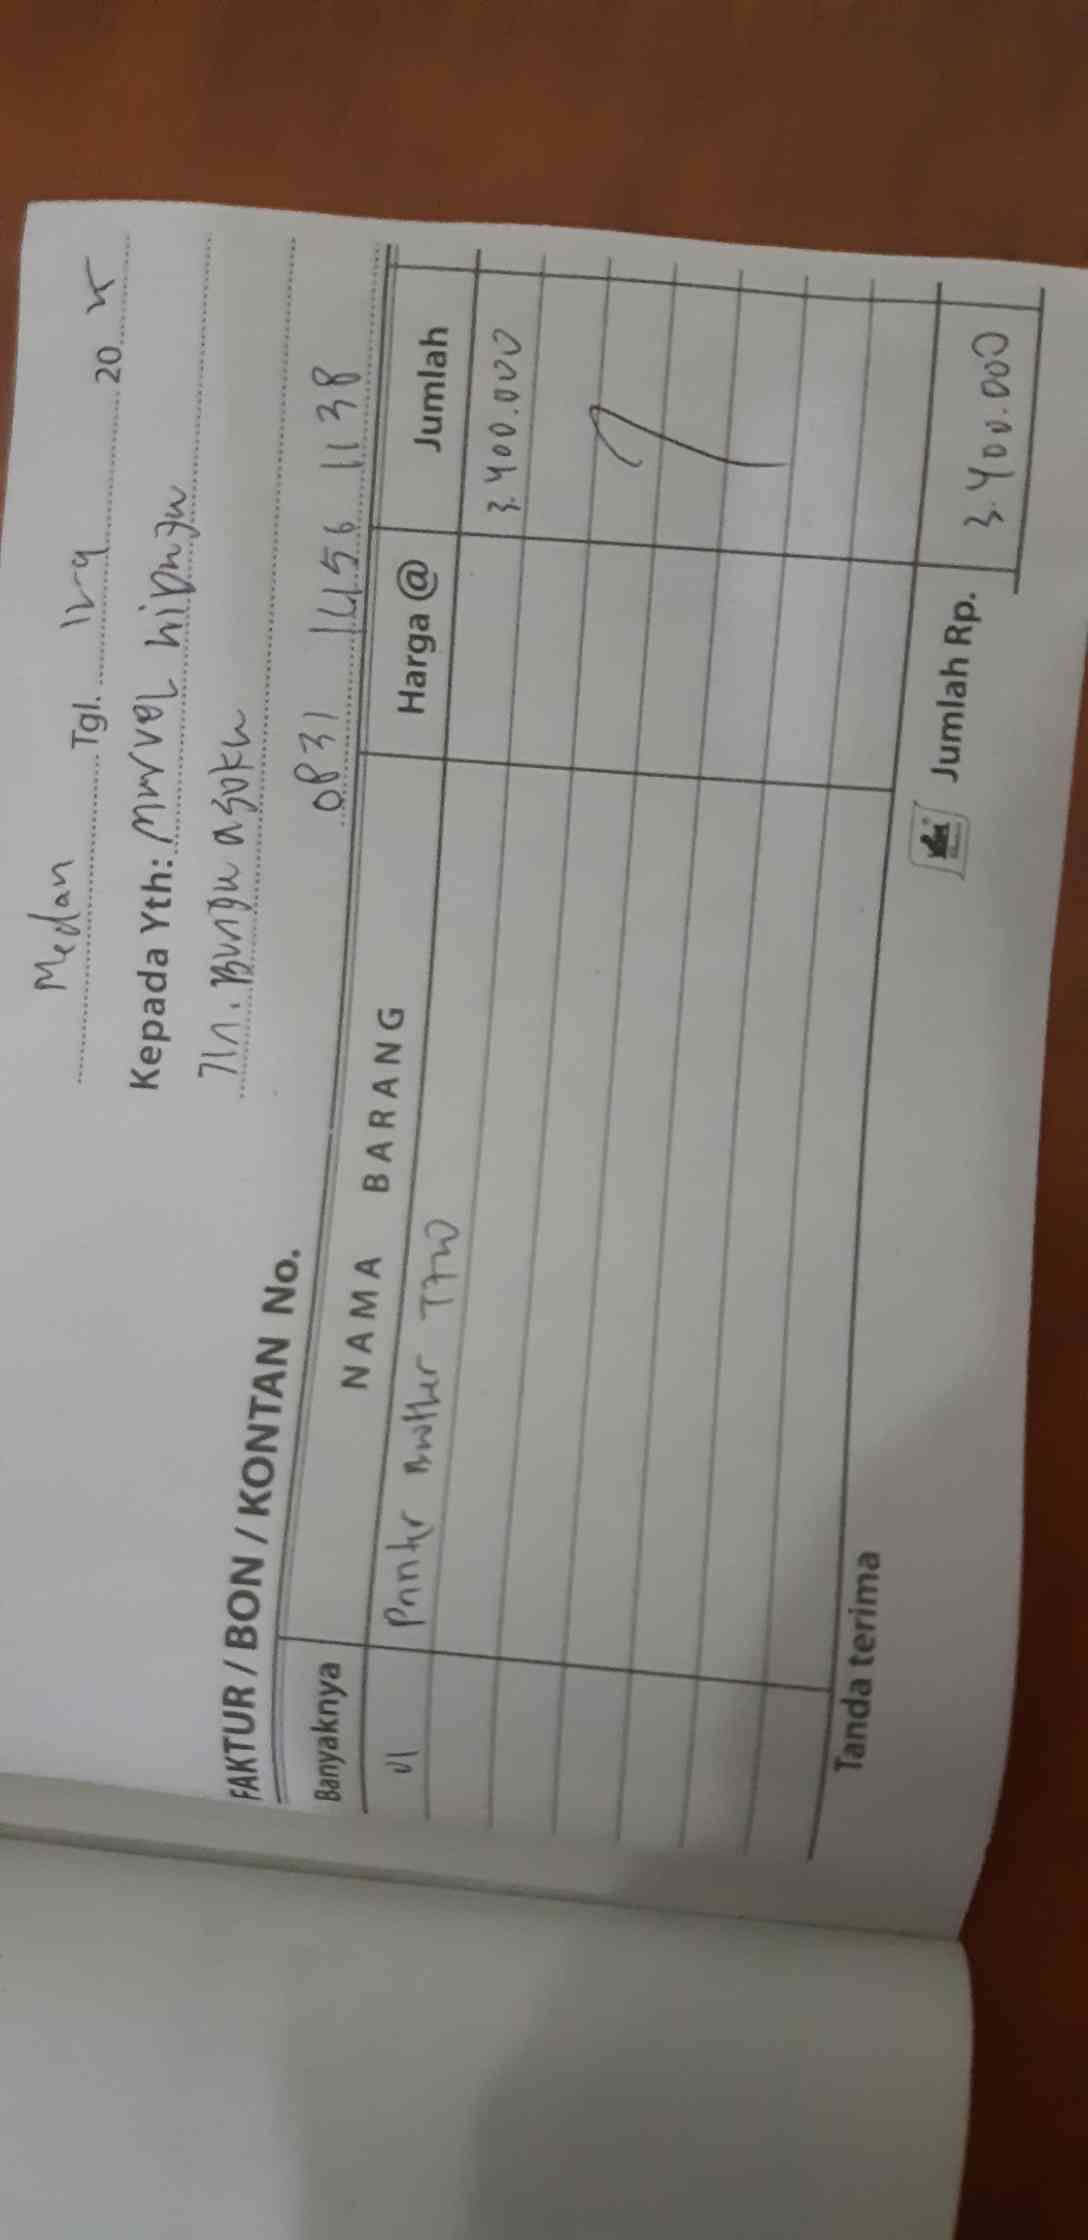 Medan Tgl. 12-9 20 25
Kepada Yth: Marvel hidayu
Jln. Bunga asoka
0831 1456 1138
FAKTUR / BON / KONTAN No.
Banyaknya NAMA BARANG Harga @ Jumlah
01 Printer Brother T720 3.400.000
Tanda terima Jumlah Rp. 3.400.000